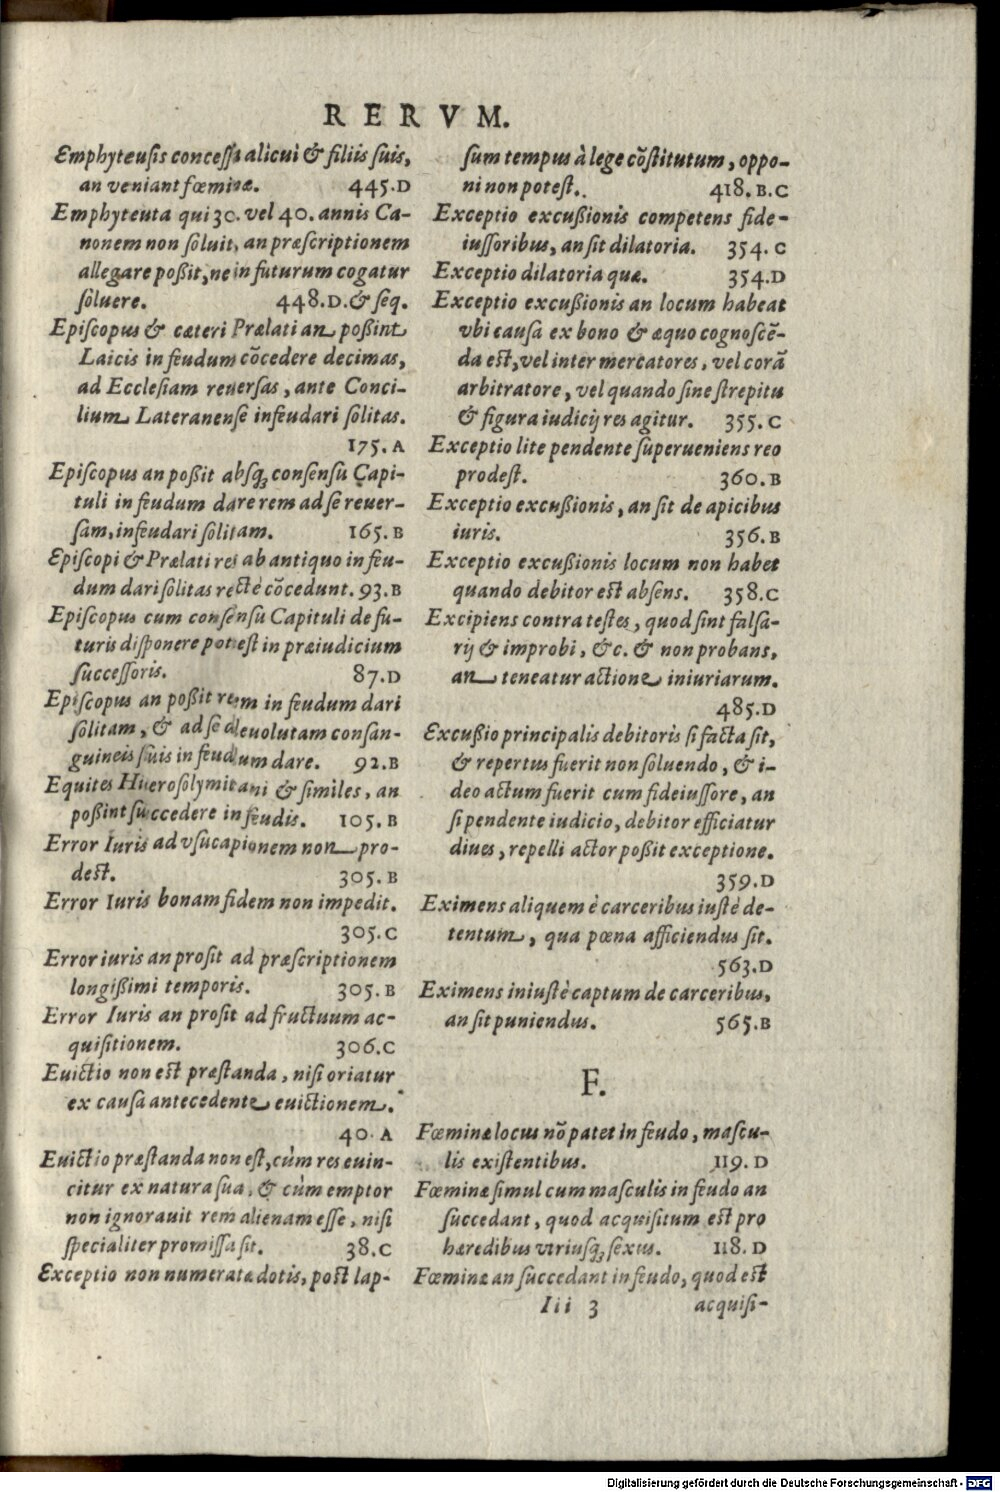 RERVM.
Emphyteusis concessa alicui & filiis suis,
an veniant fœminæ. 445.D
Emphyteuta qui 30. vel 40. annis Ca-
nonem non soluit, an præscriptionem
allegare poßit, ne in futurum cogatur
soluere. 448.D. & seq.
Episcopus & cæteri Prælati an poßint
Laicis in feudum cõcedere decimas,
ad Ecclesiam reuersas, ante Conci-
lium Lateranense infeudari solitas.
175.A
Episcopus an poßit absq; consensu Capi-
tuli in feudum dare rem ad se reuer-
sam, infeudari solitam. 165.B
Episcopi & Prælati res ab antiquo in feu-
dum dari solitas rectè cõcedunt. 93.B
Episcopus cum consensu Capituli de fu-
turis disponere potest in præiudicium
successoris. 87.D
Episcopus an poßit rem in feudum dari
solitam, & ad se deuolutam consan-
guineis suis in feudum dare. 92.B
Equites Hierosolymitani & similes, an
poßint succedere in feudis. 105.B
Error Iuris ad vsucapionem non pro-
dest. 305.B
Error Iuris bonam fidem non impedit.
305.C
Error iuris an prosit ad præscriptionem
longißimi temporis. 305.B
Error Iuris an prosit ad fructuum ac-
quisitionem. 306.C
Euictio non est præstanda, nisi oriatur
ex causa antecedente euictionem.
40.A
Euictio præstanda non est, cùm res euin-
citur ex natura sua, & cùm emptor
non ignorauit rem alienam esse, nisi
specialiter promissa sit. 38.C
Exceptio non numeratæ dotis, post lap-
sum tempus à lege cõstitutum, oppo-
ni non potest. 418.B.C
Exceptio excußionis competens fide-
iussoribus, an sit dilatoria. 354.C
Exceptio dilatoria quæ. 354.D
Exceptio excußionis an locum habeat
vbi causa ex bono & æquo cognoscẽ-
da est, vel inter mercatores, vel corã
arbitratore, vel quando sine strepitu
& figura iudicij res agitur. 355.C
Exceptio lite pendente superueniens reo
prodest. 360.B
Exceptio excußionis, an sit de apicibus
iuris. 356.B
Exceptio excußionis locum non habet
quando debitor est absens. 358.C
Excipiens contra testes, quod sint falsa-
rij & improbi, &c. & non probans,
an teneatur actione iniuriarum.
485.D
Excußio principalis debitoris si facta sit,
& repertus fuerit non soluendo, & i-
deo actum fuerit cum fideiussore, an
si pendente iudicio, debitor efficiatur
diues, repelli actor poßit exceptione.
359.D
Eximens aliquem è carceribus iustè de-
tentum, qua pœna afficiendus sit.
563.D
Eximens iniustè captum de carceribus,
an sit puniendus. 565.B
F.
Fœminæ locus nõ patet in feudo, mascu-
lis existentibus. 119.D
Fœminæ simul cum masculis in feudo an
succedant, quod acquisitum est pro
hæredibus vtriusq; sexus. 118.D
Fœminæ an succedant in feudo, quod est
Iii 3 acquisi-
Digitalisierung gefördert durch die Deutsche Forschungsgemeinschaft - DFG